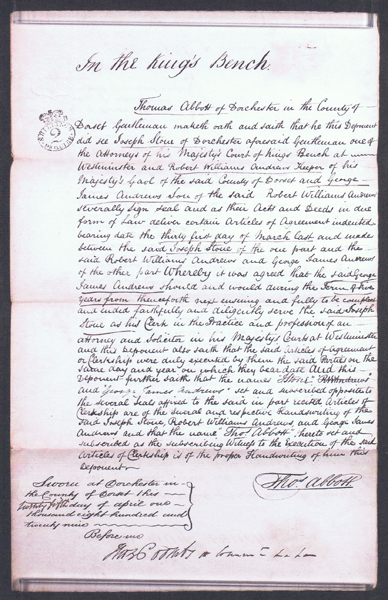 In the King's Bench.
Thomas Abbott of Dorchester in the County of
Dorset Gentleman maketh oath and saith that he this Deponent
did see Joseph Stone of Dorchester aforesaid Gentleman one of
the Attorneys of his Majesty's Court of King's Bench at
Westminster and Robert Williams Andrews Keeper of his
Majesty's Gaol of the said County of Dorset and George
James Andrews son of the said Robert Williams Andrews
severally sign seal and as their Acts and Deeds in due
form of Law deliver certain Articles of Agreement indented
bearing date the thirty first day of March last and made
between the said Joseph Stone of the one part and the
said Robert Williams Andrews and George James Andrews
of the other part Whereby it was agreed that the said George
James Andrews should and would during the Term of Five
Years from thenceforth next ensuing and fully to be complete
and ended faithfully and diligently serve the said Joseph
Stone as his Clerk in the Practice and profession of an
attorney and Solicitor in his Majesty's Courts at Westminster
and this Deponent also saith that the said articles of agreement
of Clerkship were duly executed by them the said Parties on the
same day and year on which they bear date And this
Deponent further saith that the names
and George James Andrews set and subscribed opposite to
the several Seals affixed to the said in part recited Articles of
Clerkship are of the several and respective handwriting of the
said Joseph Stone, Robert Williams Andrews, and George James
Andrews and that the name "Thos. Abbott" hereto set and
subscribed as the subscribing Witness to the Execution of the said
Articles of Clerkship is of the proper Handwriting of him this
Deponent
Thos. Abbott
Sworn at Dorchester in
the County of Dorset this
day of April one
thousand eight hundred and
twenty nine
Before me